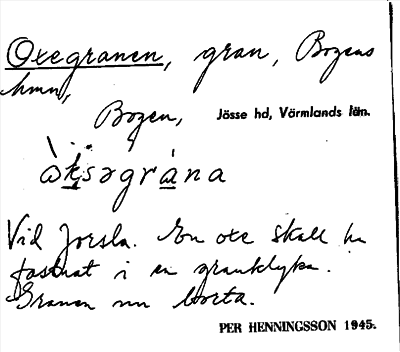 Oxegranen, gran, Bogens
hmn,
Bogen, Jösse hd, Värmlands län.
ò̀ksəgràna
Vid Jorsla. En oxe skall ha
fastnat i en granklyka.
Granen nu borta.
PER HENNINGSSON 1945.